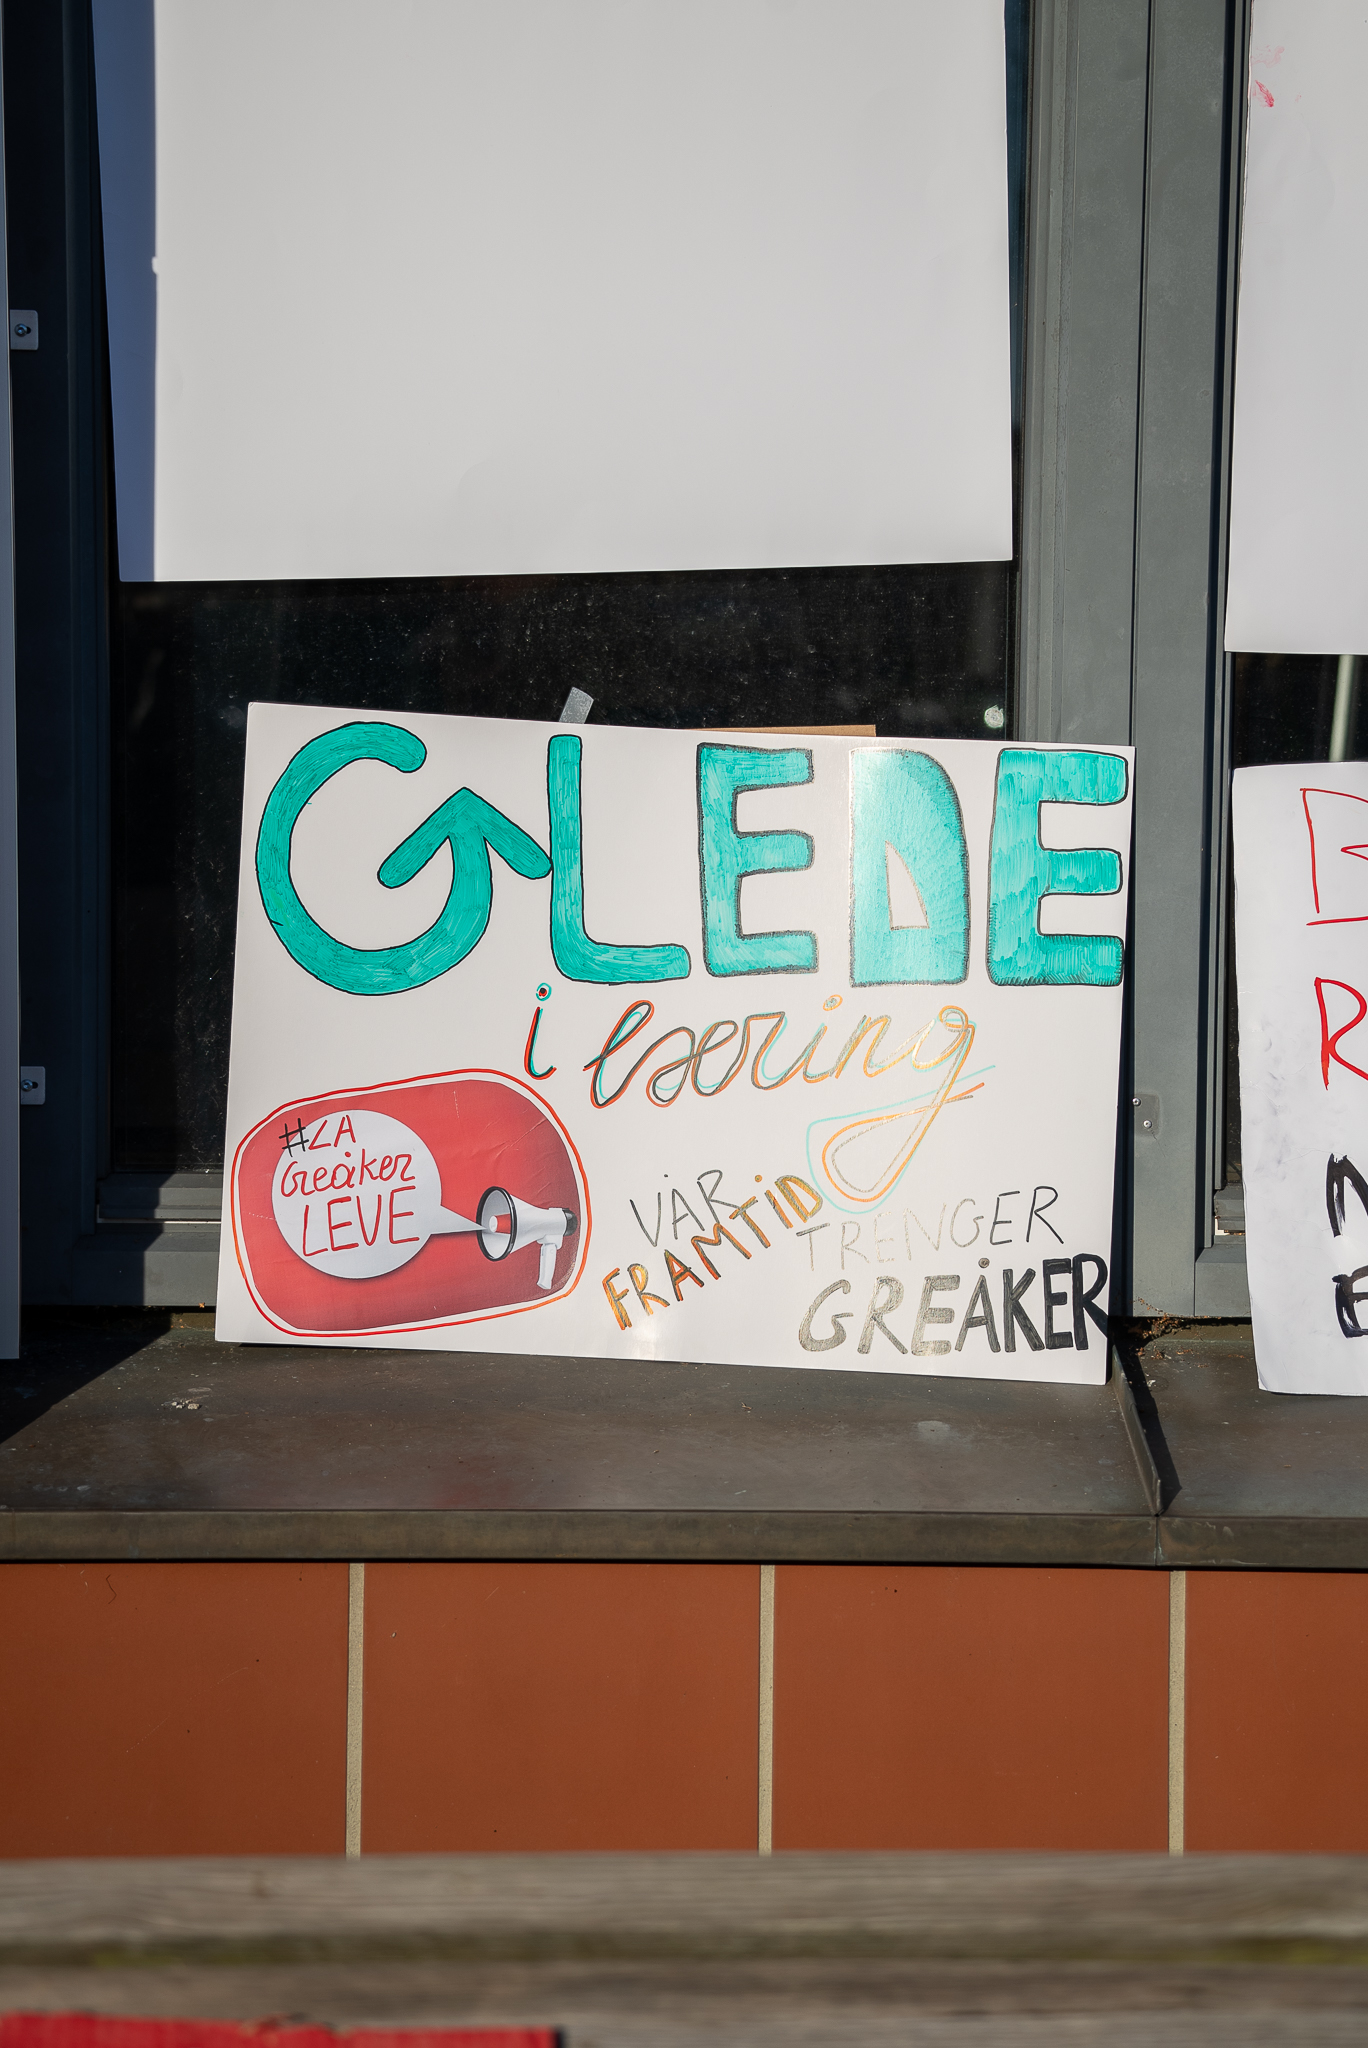 GLEDE
i læring
#LA
Greåker
LEVE
VÅR
FRAMTiD
TRENGER
GREÅKER